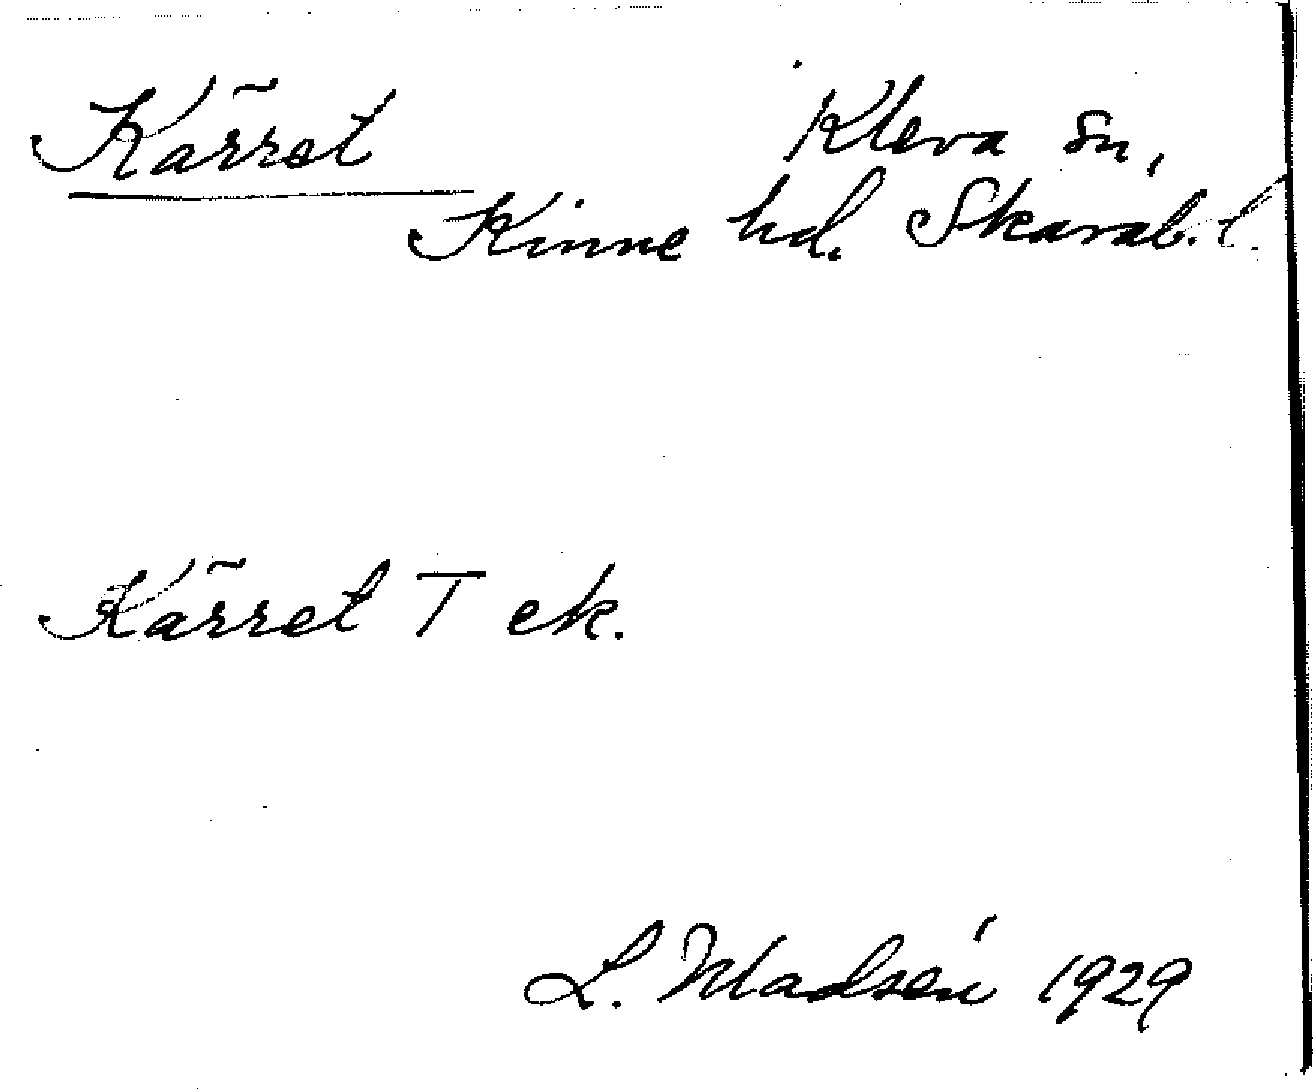 Kärret Kleva sn,
Kinne hd. Skarab. l.
Kärret T ek.
L. Madsén 1929